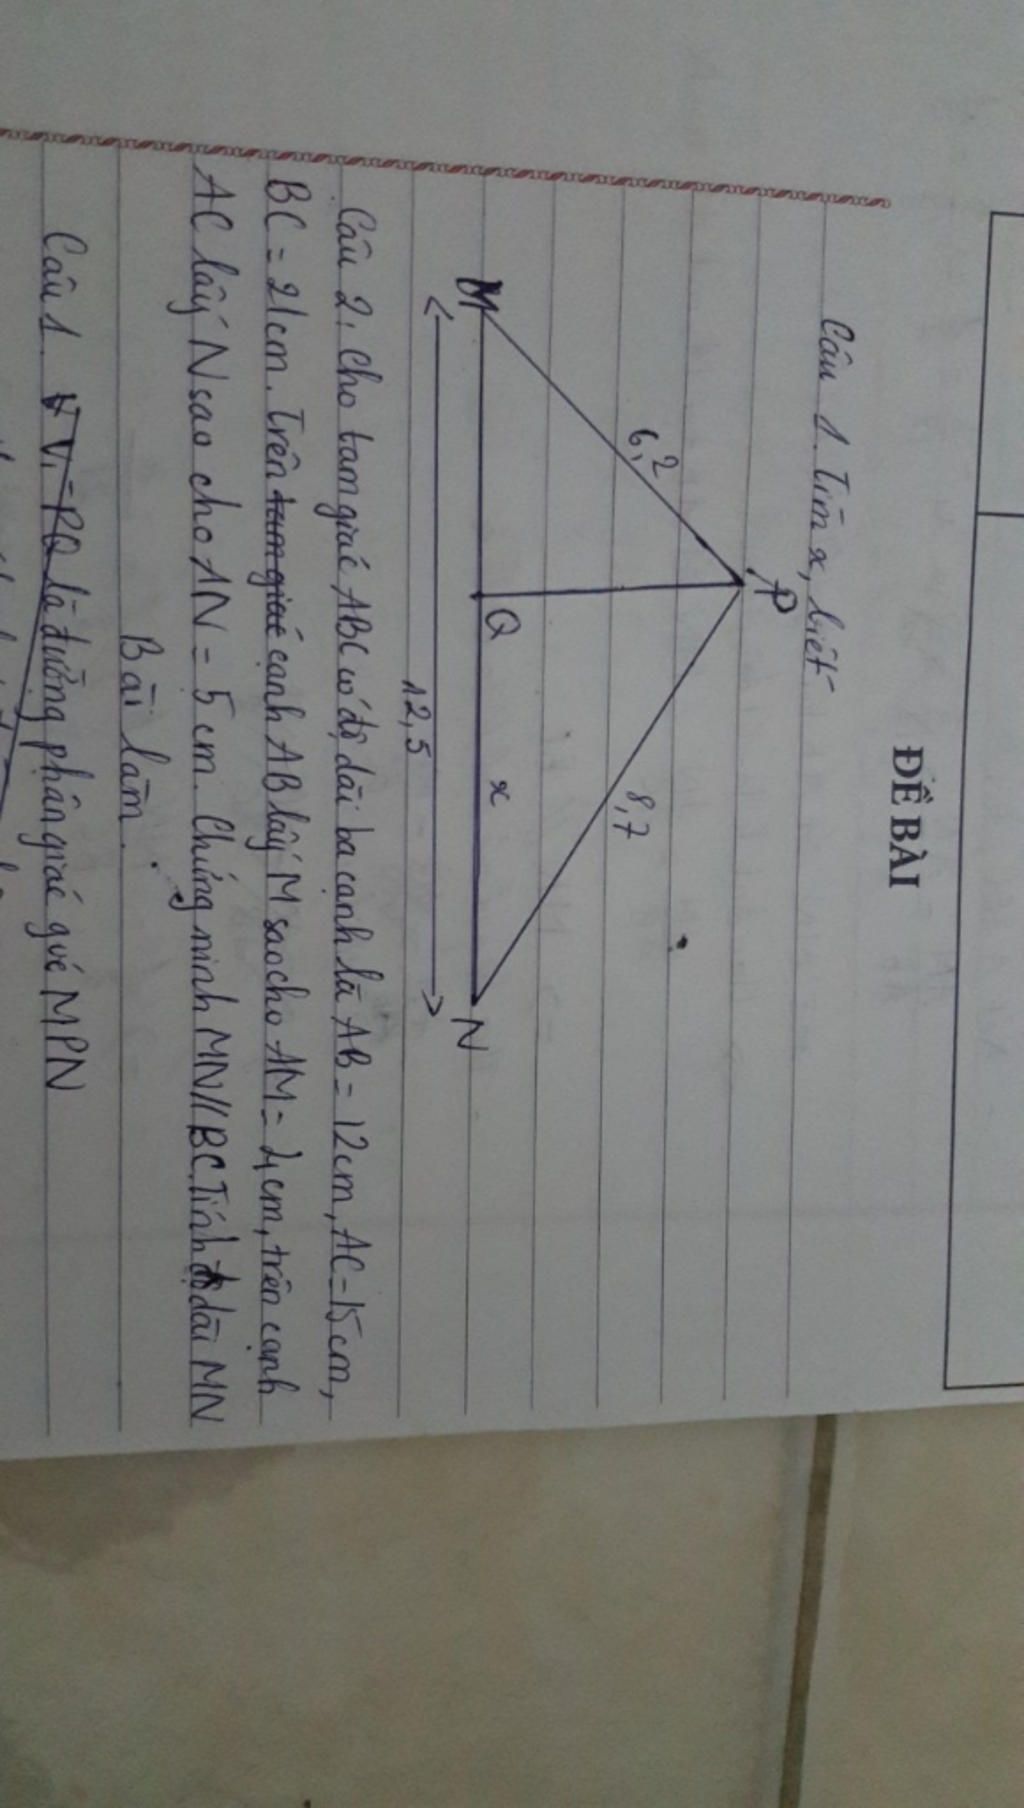 ĐỀ BÀI
Câu 1. Tìm x, biết
P
6,2
8,7
M
Q
x
N
12,5
Câu 2. Cho tam giác ABC có độ dài ba cạnh là AB = 12cm, AC = 15cm,
BC = 21cm. Trên tam giác cạnh AB lấy M sao cho AM = 4cm, trên cạnh
AC lấy N sao cho AN = 5cm. Chứng minh MN // BC. Tính độ dài MN
Bài làm.
Câu 1. Vì PQ là đường phân giác góc MPN